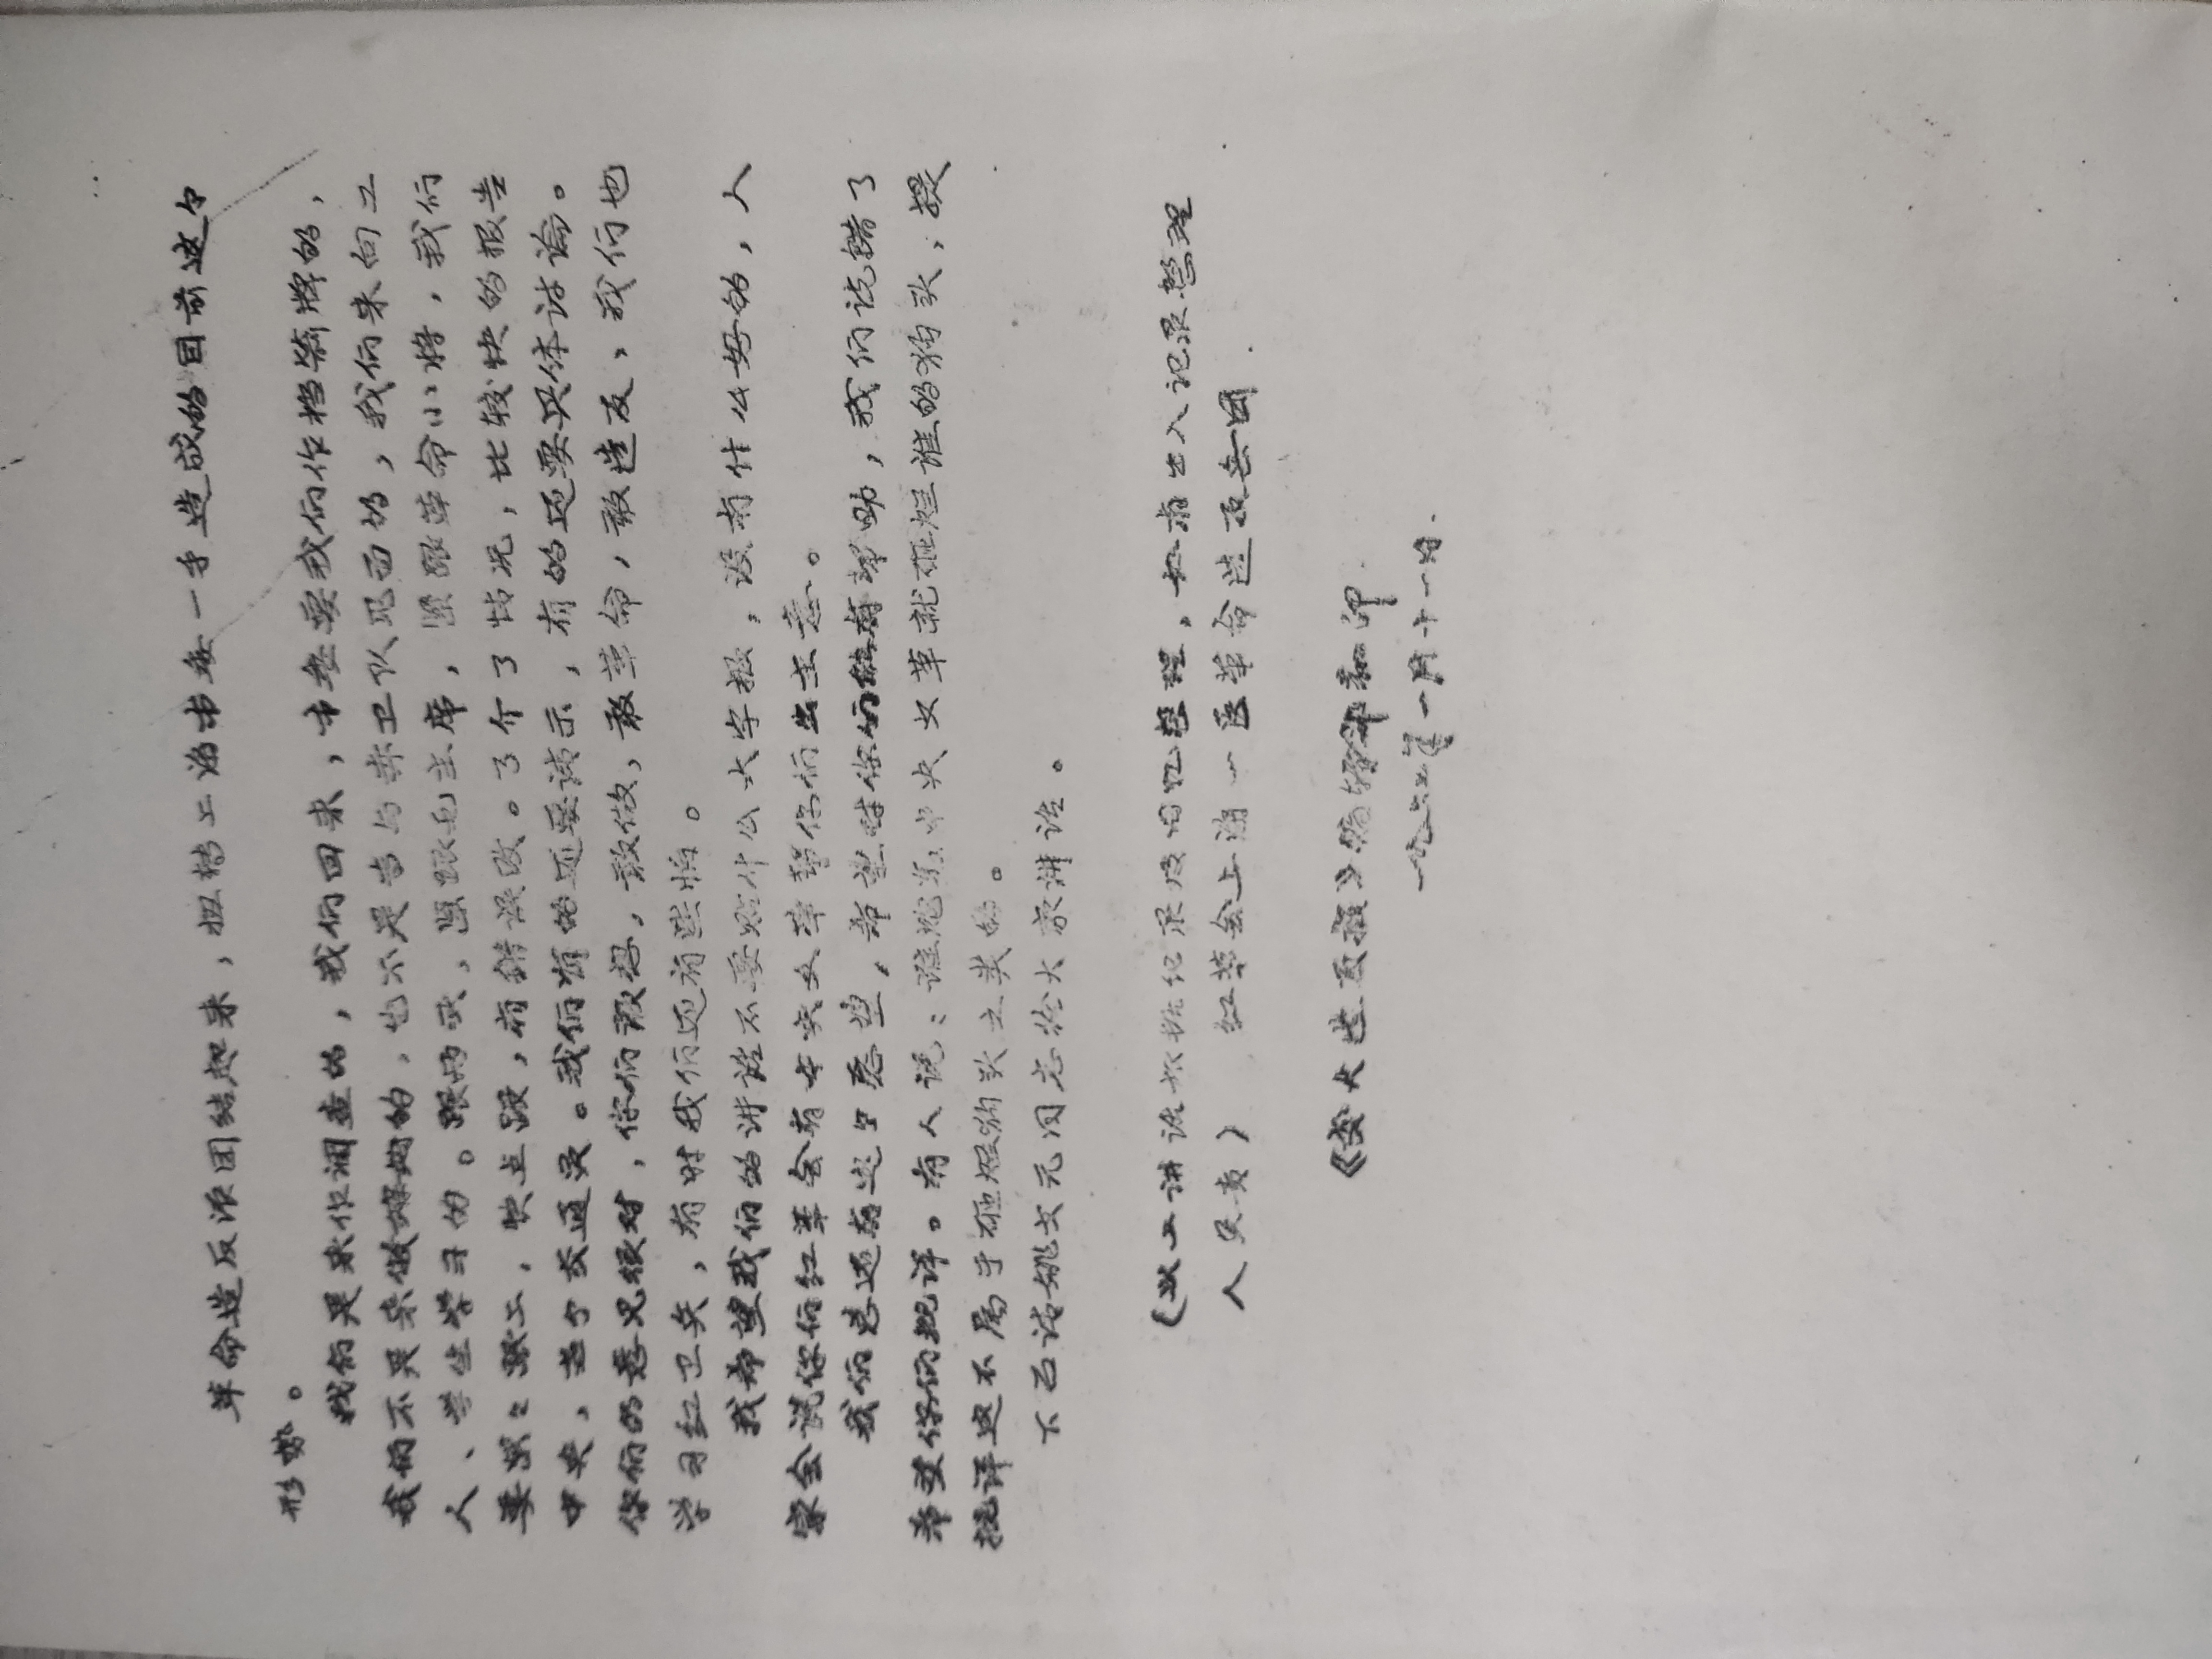 革命造反派团结起来，扭转上海市委一手造成的目前这个
形势。
我们是来作调查的，我们回来，市委要我们作挡箭牌的，
我们不是来做的，也不是当与赤卫队见面的，我们来向工
人、学生学习的。跟两头，紧跟毛主席，紧跟革命小将，我们
要紧々跟上，快点跟，有错误改。了介了情况，比较快的报告
中央，当个交通员。我们有的还要请示，有的还要具体讨论。
你们的意见很对，你们敢想，敢做，敢革命，敢造反，我们也
学习红卫兵，有时我们还有些怕。
我希望我们的讲话不要贴什么大字报，没有什么好的，人
家会说你们红革会有中央文革帮你们出主意。
我们总还有这个愿望，希望对你们能有帮助，我们说错了
希望你们批评。有人说：谁炮轰中央文革就砸烂谁的狗头，提
批评这不属于砸烂狗头之类的。
下面请姚文元同志给大家讲话。
（以上讲话根据纪录及回忆整理，如有出入记录整理
人负责） 红革会上海一医革命造反兵团.
《交大造反报》编辑部翻印.
一九六七年一月十一日.